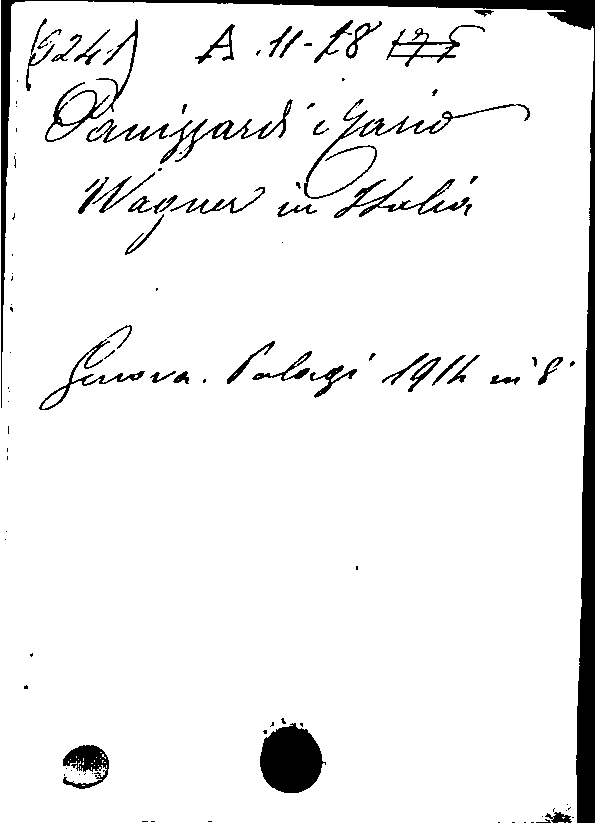 (9241) A.11-18 175
Panizzardi Mario
Wagner in Italia
Genova. Palagi 1914 in 8°